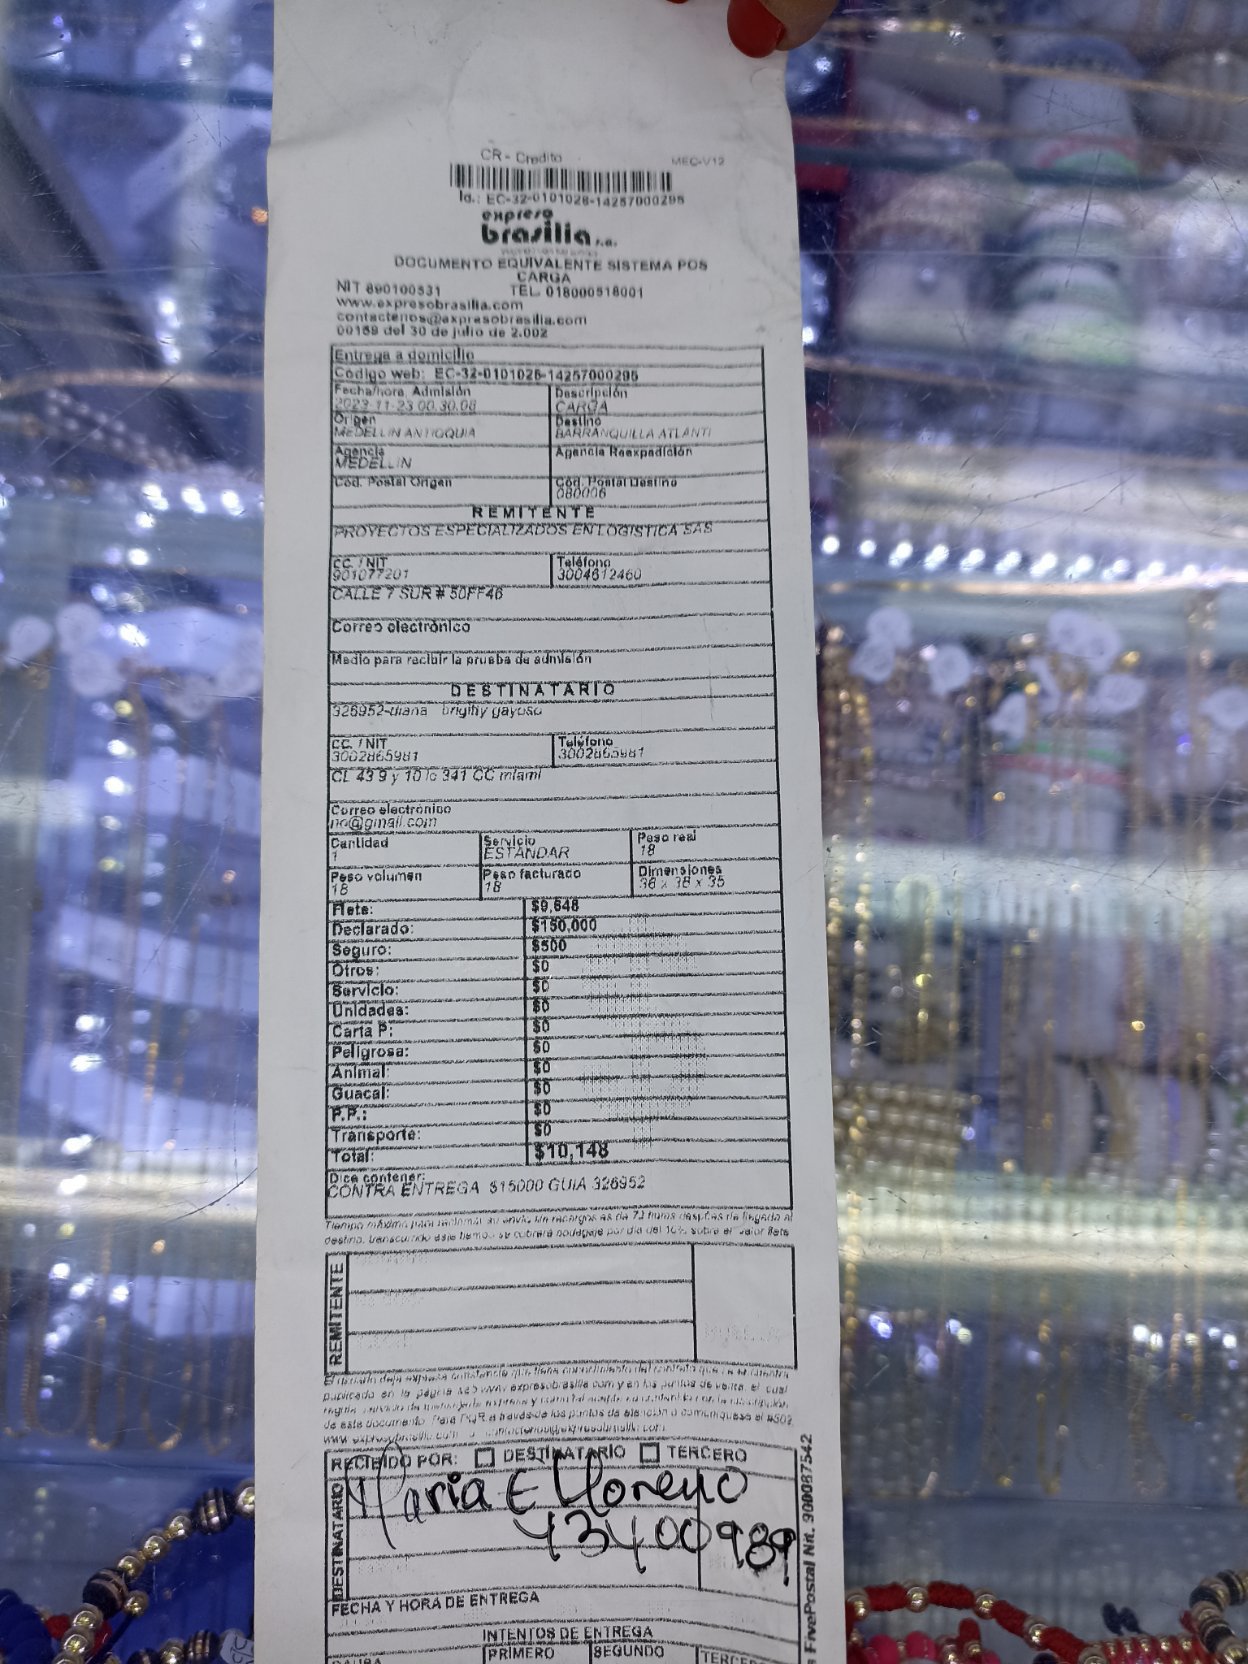 CR - Credito MEC-V12
Id.: EC-32-0101028-14257000295
expreso
brasilia s.a.
DOCUMENTO EQUIVALENTE SISTEMA POS
CARGA
NIT 890100531 TEL. 018000518001
www.expresobrasilia.com
contactenos@expresobrasilia.com
00169 del 30 de julio de 2.002
Entrega a domicilio
Código web: EC-32-0101028-14257000295
Fecha/hora Admisión Descripción
2023-11-23 00:30:08 CARGA
Origen Destino
MEDELLIN ANTIOQUIA BARRANQUILLA ATLANTI
Agencia Agencia Reexpedición
MEDELLIN
Cód. Postal Origen Cód. Postal Destino
080006
REMITENTE
PROYECTOS ESPECIALIZADOS EN LOGISTICA SAS
CC. / NIT Teléfono
901077201 3004612460
CALLE 7 SUR # 50FF46
Correo electrónico
Medio para recibir la prueba de admisión
DESTINATARIO
326952-diana brigithy gayoso
CC. / NIT Teléfono
3002865981 3002865981
CL 43 9 y 10 lc 341 CC miami
Correo electrónico
no@gmail.com
Cantidad Servicio Peso real
1 ESTÁNDAR 18
Peso volumen Peso facturado Dimensiones
18 18 36 x 38 x 35
Flete: $9,648
Declarado: $150,000
Seguro: $500
Otros: $0
Servicio: $0
Unidades: $0
Carta P: $0
Peligrosa: $0
Animal: $0
Guacal: $0
P.P.: $0
Transporte: $0
Total: $10,148
Dice contener:
CONTRA ENTREGA $15000 GUIA 326952
Tiempo máximo para reclamar su envío sin recargos es de 72 horas después de llegado al
destino, transcurrido este tiempo se cobrará bodegaje por día del 10% sobre el valor flete
REMITENTE
publicado en la página web www.expresobrasilia.com y en los puntos de venta, el cual
de este documento. Para PQR a través de los puntos de atención o comuníquese al #502
RECIBIDO POR: DESTINATARIO TERCERO
DESTINATARIO
Maria E Moreno
43400989
FECHA Y HORA DE ENTREGA
INTENTOS DE ENTREGA
CAUSA PRIMERO SEGUNDO TERCER
FivePostal Nit. 900087542